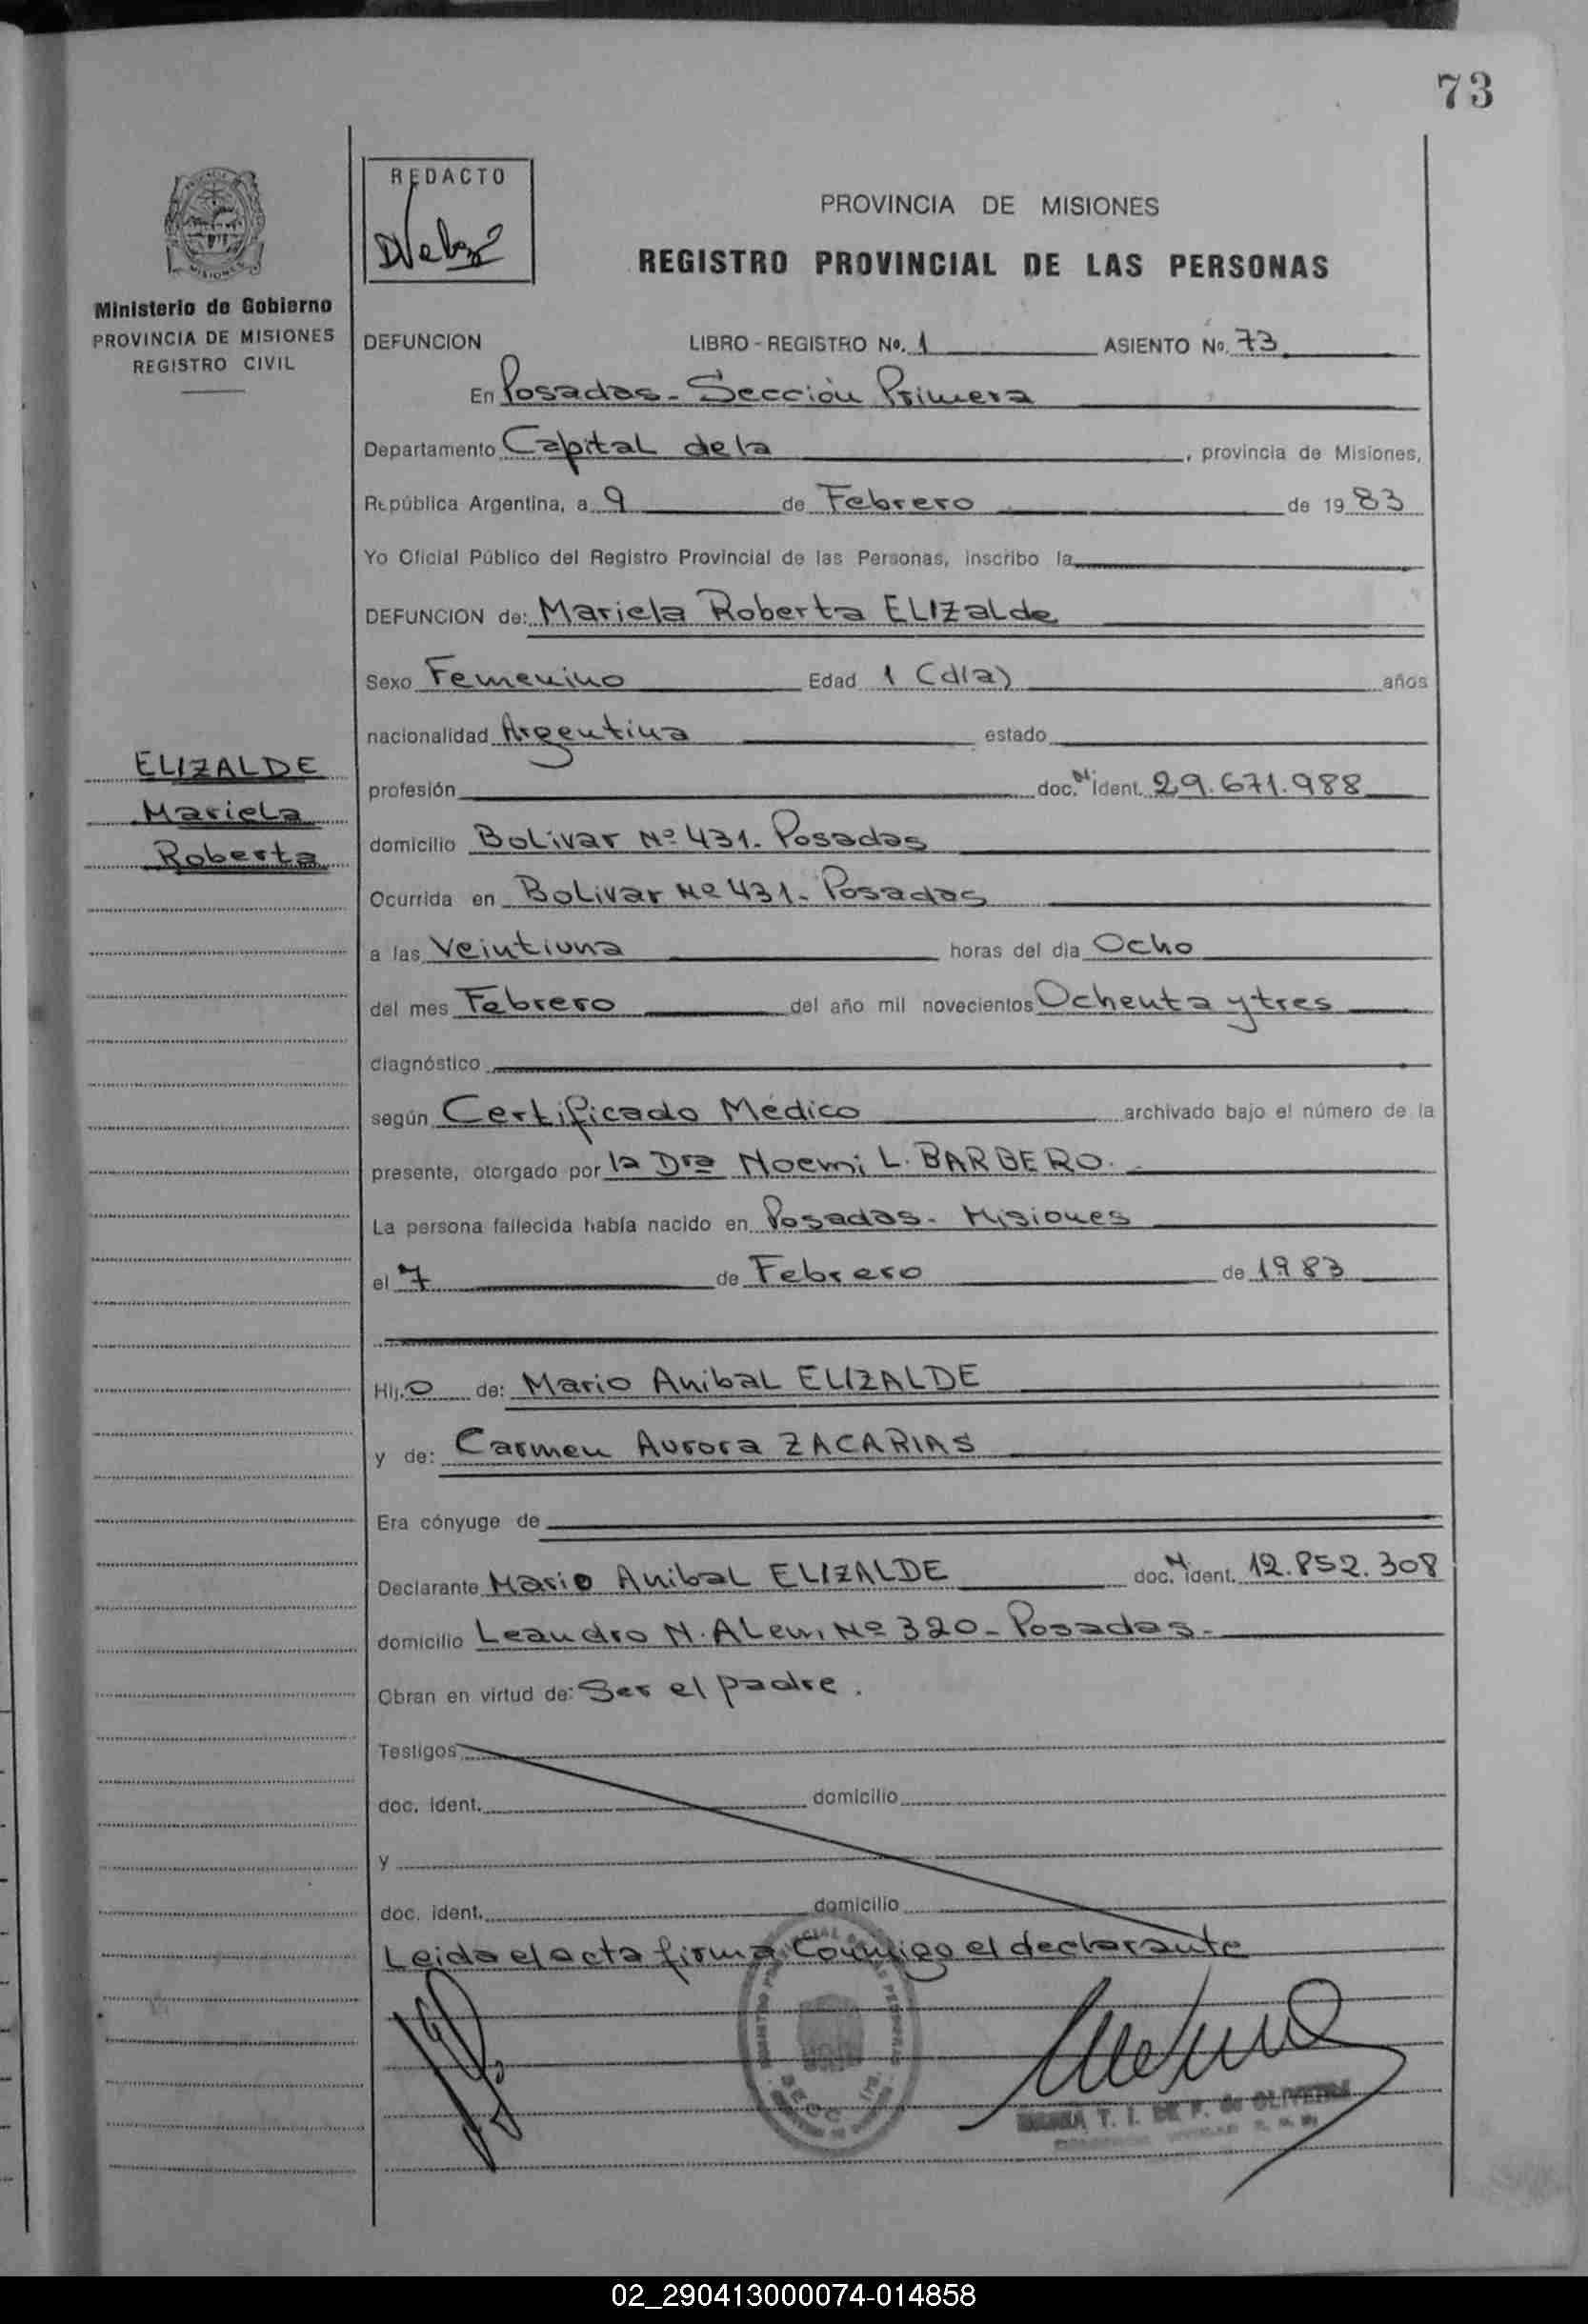 73
REDACTO
PROVINCIA DE MISIONES
REGISTRO PROVINCIAL DE LAS PERSONAS
Ministerio de Gobierno
PROVINCIA DE MISIONES
REGISTRO CIVIL
DEFUNCION LIBRO - REGISTRO No. 1 ASIENTO No. 73
En Posadas - Sección Primera
Departamento Capital de la, provincia de Misiones,
República Argentina, a 9 de Febrero de 1983
Yo Oficial Público del Registro Provincial de las Personas, inscribo la
DEFUNCION de: Mariela Roberta ELIZalde
Sexo Femenino Edad 1 (día) años
nacionalidad Argentina estado
ELIZALDE
Mariela
Roberta
profesión doc. N ident. 29.671.988
domicilio Bolivar Nº 431. Posadas
Ocurrida en Bolivar Nº 431. Posadas
a las Veintiuna horas del día Ocho
del mes Febrero del año mil novecientos Ochenta y tres
diagnóstico
según Certificado Médico archivado bajo el número de la
presente, otorgado por la Dra Noemi L. BARBERO.
La persona fallecida había nacido en Posadas - Misiones
el 7 de Febrero de 1983
Hij.o de: Mario Anibal ELIZALDE
y de: Carmen Aurora ZACARIAS
Era cónyuge de
Declarante Mario Anibal ELIZALDE doc. N ident. 12.852.308
domicilio Leandro N. Alem Nº 320 - Posadas -
Obran en virtud de: Ser el padre.
Testigos
doc. ident. domicilio
y
doc. ident. domicilio
Leida el acta firma Conmigo el declarante
T. I. DE F. de OLIVEIRA
02_290413000074-014858